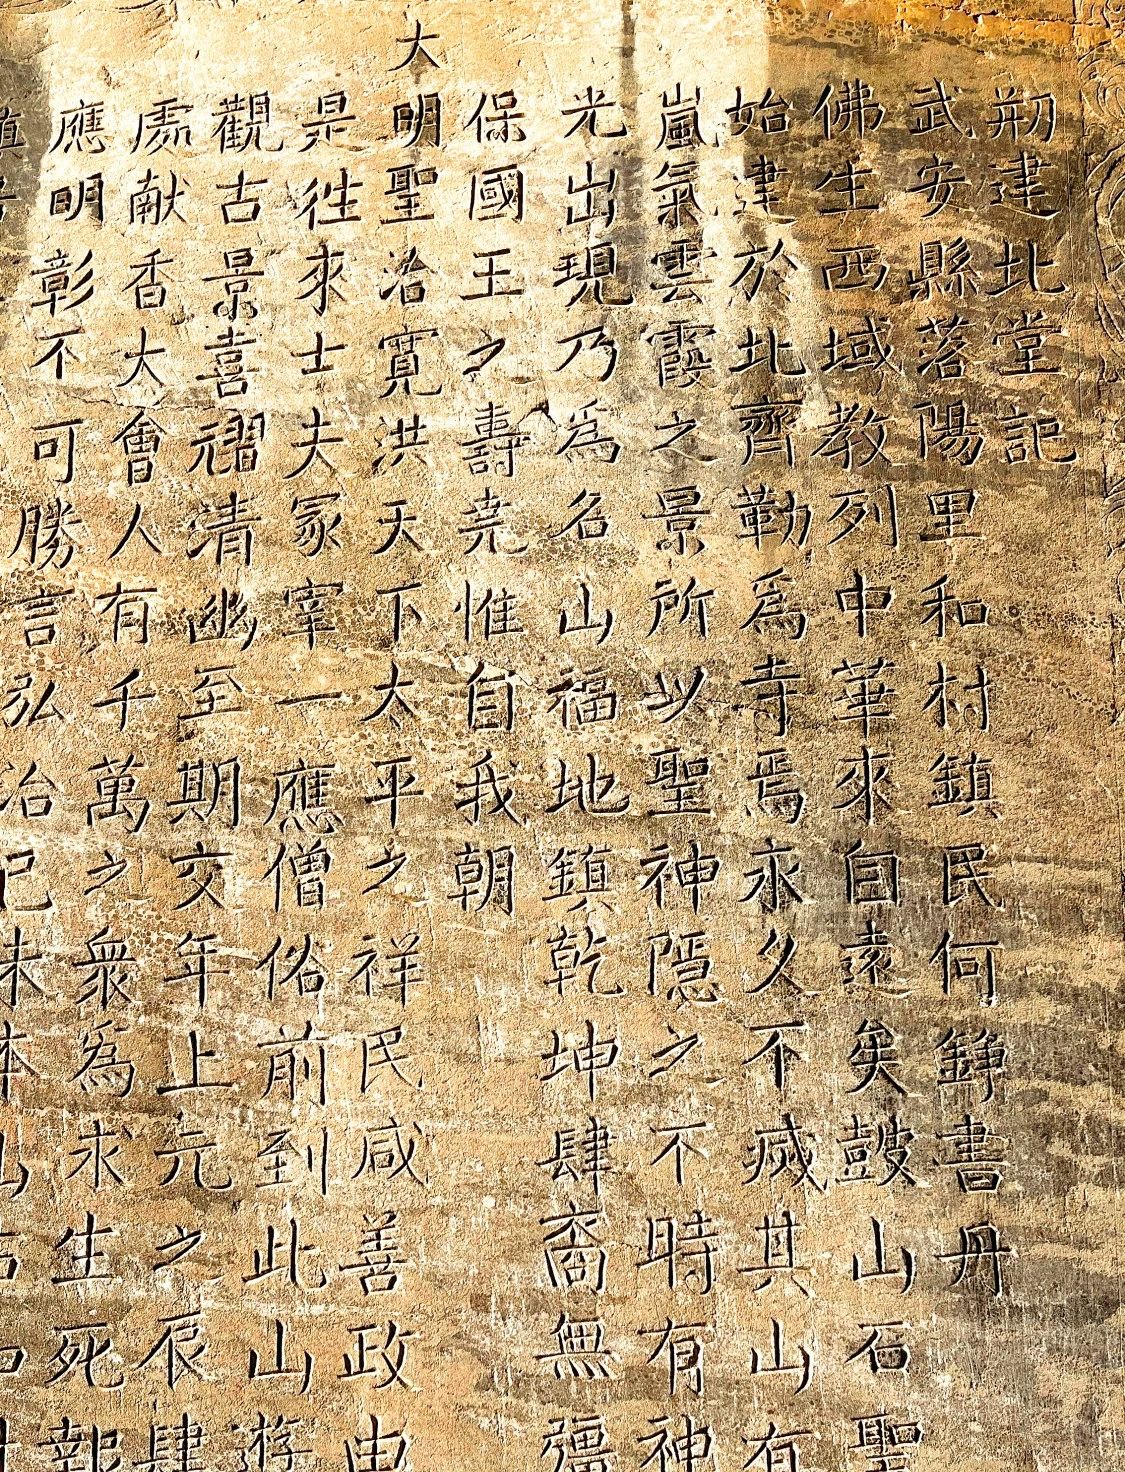 剏建北堂記
武安縣落陽里和村鎮民何錚書丹
佛生西域教列中華來自遠矣鼓山石聖
始建於北齊勒爲寺焉永久不烕其山有
嵐氣雲霞之景所以聖神隱之不時有神
光出現乃爲名山福地鎮乾坤肆裔無彊
保國王之壽尭惟自我朝
大明聖治寬洪天下太平之祥民咸善政由
是徃來士夫冢宰一應僧俗前到此山游
觀古景喜禤清幽至期交年上元之辰肆
處献香大會人有千萬之衆爲求生死報
應明彰不可勝言弘治己未本山